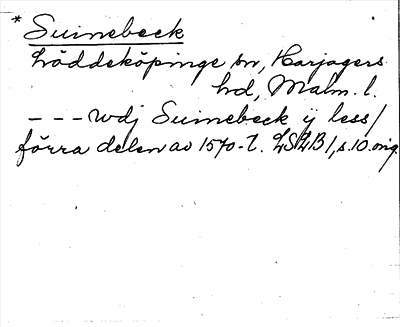 * Suinebeck
Löddeköpinge sn, Harjagers
hd, Malm. l.
- - - wdj Suinebeck ij less/
förra delen av 1570-t. LSLB1, s. 10. orig.